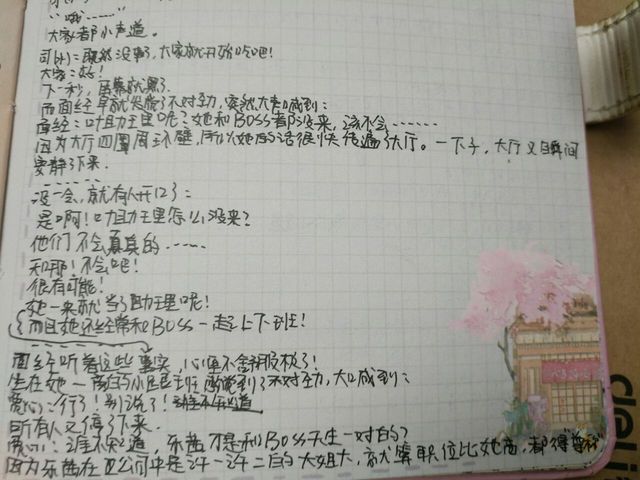 “哦……”
大家都小声道。
可(*):既然没事了,大家就开始吃吧!
大家:好!
下一秒,屏幕就黑了.
而面经早就发觉了不对劲,突然大声喊到:
面经:叶助理呢?她和BOSS都没来,该不会……
因为大厅四围周环壁,所以她的话很快传遍了大厅。一下子,大厅又瞬间
安静了下来.
没一会,就有人开口了:
是啊!叶助理怎么没来?
他们不会真真的……
知那!不会吧!
很有可能!
她一来就当了助理呢!
而且她还经常和BOSS一起上下班!
面经听着这些事实,心里不舒服极了!
坐在她一旁的
察觉到了不对劲,大口喊到:
爱心:行了!别说了!
所有人又停了下来.
爱心:谁不知道,东茜才是和BOSS天生一对的?
因为东茜在 公司中是说一说二的大姐大,就算职位比她高,都得
deli